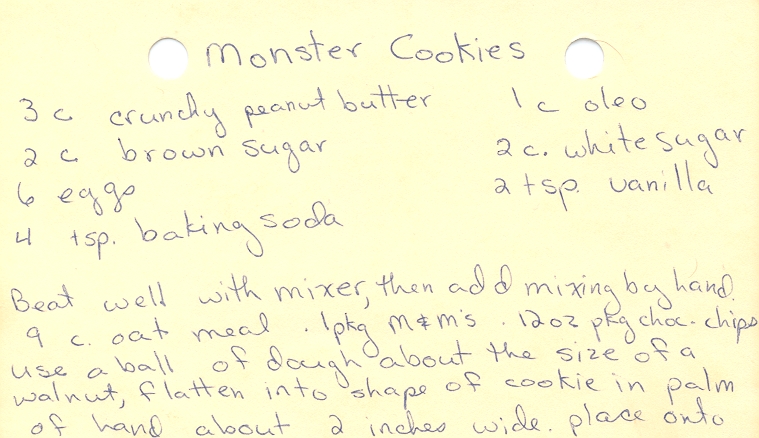 Monster Cookies
3 c crunchy peanut butter 1 c oleo
2 c brown sugar 2 c. white sugar
6 eggs 2 tsp. vanilla
4 tsp. baking soda
Beat well with mixer, then add mixing by hand.
9 c. oat meal. 1 pkg M&M's. 12 oz pkg choc. chips
use a ball of dough about the size of a
walnut, flatten into shape of cookie in palm
of hand about 2 inches wide. place onto